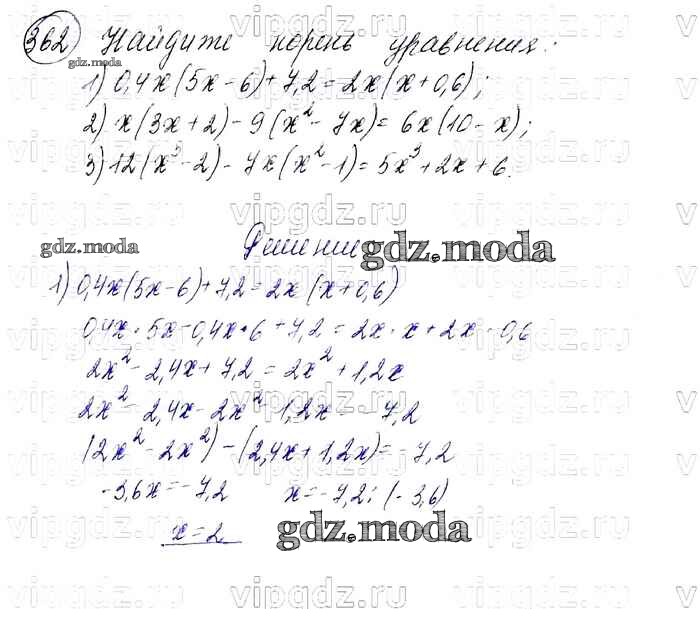 362 Найдите корень уравнения:
gdz.moda
1) 0,4x(5x-6)+7,2=2x(x+0,6);
2) x(3x+2)-9(x²-7x)=6x(10-x);
3) 12(x³-2)-7x(x²-1)=5x³+2x+6.
Решение
gdz.moda
gdz.moda
1) 0,4x(5x-6)+7,2=2x(x+0,6)
0,4x·5x-0,4x·6+7,2=2x·x+2x·0,6
2x²-2,4x+7,2=2x²+1,2x
2x²-2,4x-2x²-1,2x=-7,2
(2x²-2x²)-(2,4x+1,2x)=-7,2
-3,6x=-7,2 x=-7,2:(-3,6)
x=2
gdz.moda
vipgdz.ru